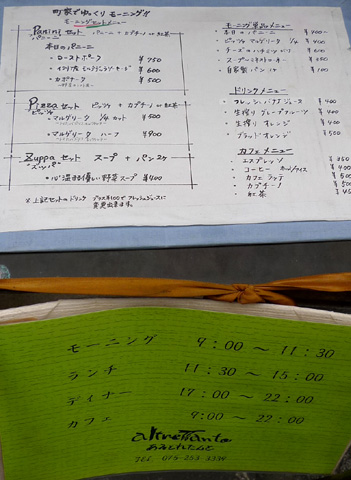 町家でゆっくり モーニング!!
モーニングセットメニュー
Panini セット パニーニ + カプチーノ or 紅茶
パニーニ
本日のパニーニ
・ローストポーク ¥750
¥600
・カポナータ ¥500
Pizza セット ピッツァ + カプチーノ or 紅茶
ピッツァ
・マルゲリータ 1/4 カット ¥500
・マルゲリータ ハーフ ¥900
Zuppa セット スープ + パン2ケ
ズッパ
・心温まる優しい野菜スープ ¥700
※上記セットのドリンク プラス¥100でフレッシュジュースに
変更出来ます。
モーニング単品メニュー
・本日のパニーニ ¥400〜
・ピッツァ マルゲリータ 1/4 ¥400
・チーズのハチミツ ¥600
・スープ ミネストローネ ¥350
・自家製パン 1ケ ¥100
ドリンクメニュー
・フレッシュ バナナジュース ¥400
・生搾り グレープフルーツ ¥400
・生搾り オレンジ ¥400
・ブラッドオレンジ ¥500
カフェメニュー
・エスプレッソ ¥350
・コーヒー ¥400
・カフェ ラッテ ¥500
・カプチーノ ¥500
・紅茶
モーニング 9:00 〜 11:30
ランチ 11:30 〜 15:00
ディナー 17:00 〜 22:00
カフェ 9:00 〜 22:00
TEL 075-253-3339